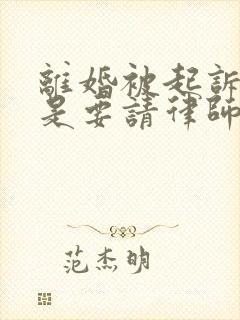 離婚被起訴
是要請律師
范杰明